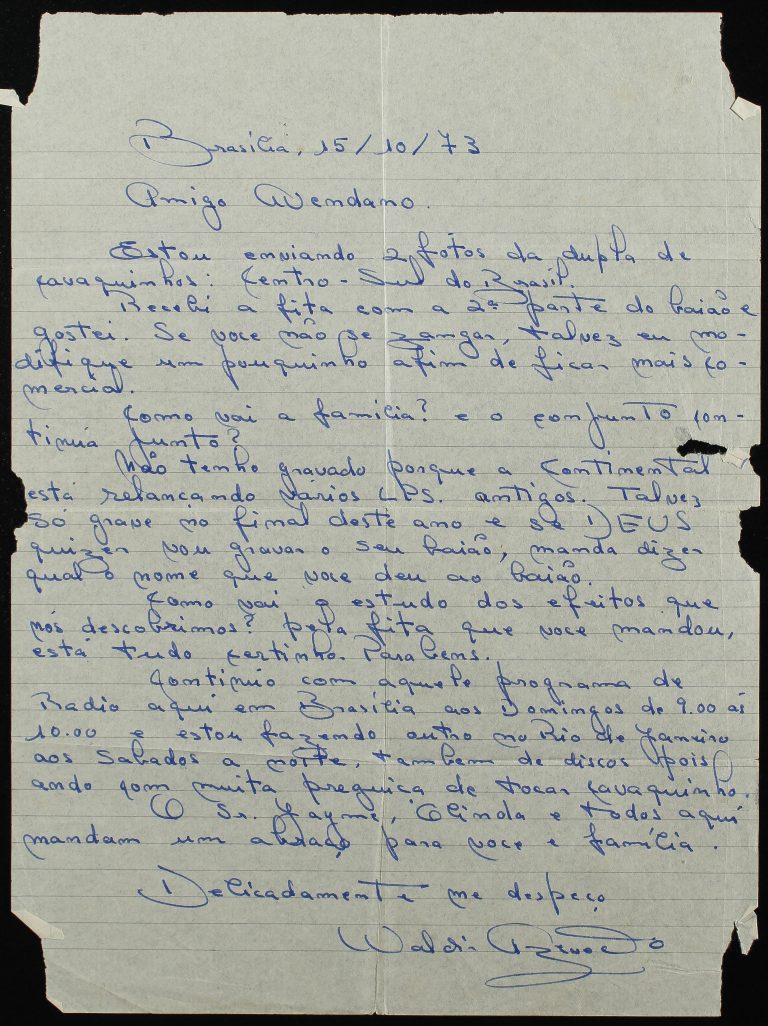 Brasília, 15/10/73
Amigo Avendano.
Estou enviando 2 fotos da dupla de
cavaquinhos: Centro-Sul do Brasil.
Recebi a fita com a 2ª parte do baião e
gostei. Se voce não se zangar, talvez eu mo-
difique um pouquinho afim de ficar mais co-
mercial.
Como vai a família? e o conjunto con-
tinua junto?
Não tenho gravado porque a Continental
está relançando vários LPS. antigos. Talvez
só grave no final deste ano e se DEUS
quizer vou gravar o seu baião, manda dizer
qual o nome que voce deu ao baião.
Como vai o estudo dos efeitos que
nós descobrimos? pela fita que voce mandou,
está tudo certinho. Parabens.
Continúo com aquele programa de
Radio aqui em Brasília aos Domingos de 9.00 ás
10.00 e estou fazendo outro no Rio de Janeiro
aos Sabados a noite, tambem de discos pois
ando com muita preguiça de tocar cavaquinho.
O Sr. Jayme, Olinda e todos aqui
mandam um abraço para voce e família.
Delicadamente me despeço
Waldir Azevedo